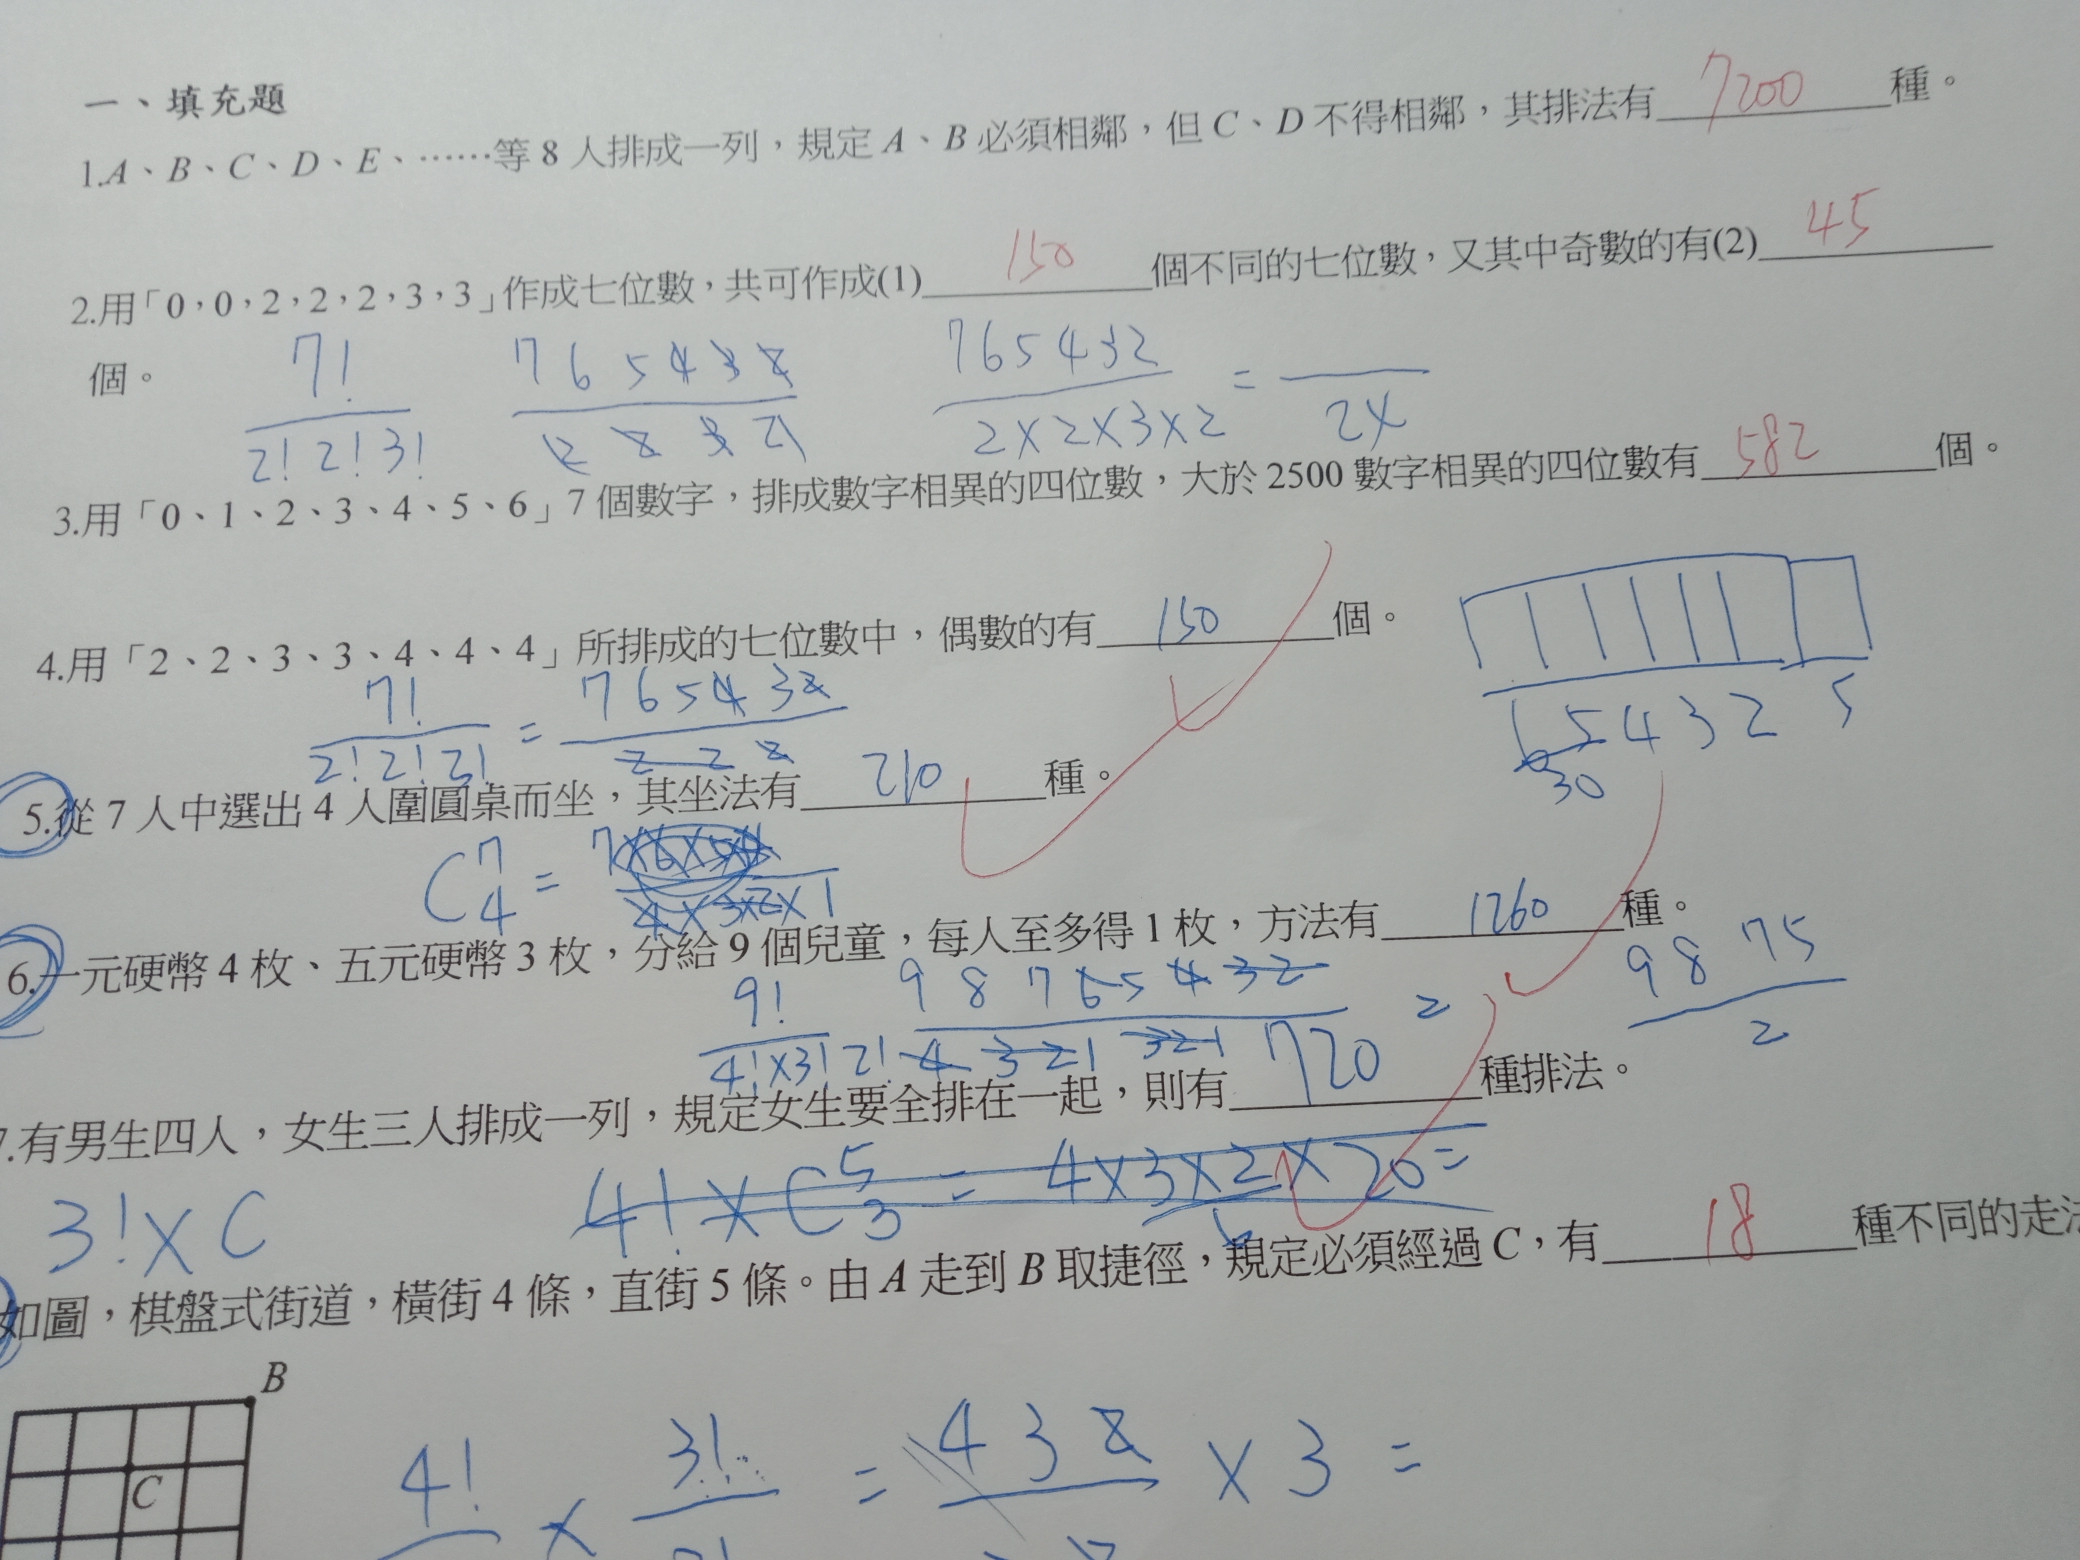 一、填充題
1.A、B、C、D、E、……等 8 人排成一列，規定 A、B 必須相鄰，但 C、D 不得相鄰，其排法有 7200 種。
2.用「0，0，2，2，2，3，3」作成七位數，共可作成(1) 150 個不同的七位數，又其中奇數的有(2) 45
個。 7! 7 6 5 4 3 2 7 6 5 4 3 2 =
2! 2! 3! 2 2 3 2 1 2×2×3×2 2×
3.用「0、1、2、3、4、5、6」7 個數字，排成數字相異的四位數，大於 2500 數字相異的四位數有 582 個。
4.用「2、2、3、3、4、4、4」所排成的七位數中，偶數的有 150 個。
7! = 7 6 5 4 3 2
2! 2! 2! 2 2 2
6 5 4 3 2 5
30
5.從 7 人中選出 4 人圍圓桌而坐，其坐法有 210 種。
C 7 4 = 7×6×5×4
4×3×2×1
6.一元硬幣 4 枚、五元硬幣 3 枚，分給 9 個兒童，每人至多得 1 枚，方法有 1260 種。
9! 9 8 7 6 5 4 3 2 = 9 8 7 5
4!×3! 2! 4 3 2 1 3 2 1 2
7.有男生四人，女生三人排成一列，規定女生要全排在一起，則有 720 種排法。
3!×C 4!×C 5 3 = 4×3×2×20=
6
如圖，棋盤式街道，橫街 4 條，直街 5 條。由 A 走到 B 取捷徑，規定必須經過 C，有 18 種不同的走法
B
C
4! × 3! = 4 3 2 × 3 =